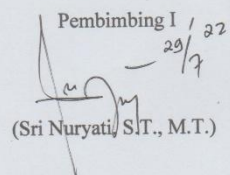 Pembimbing I
29/7 22
(Sri Nuryati, S.T., M.T.)